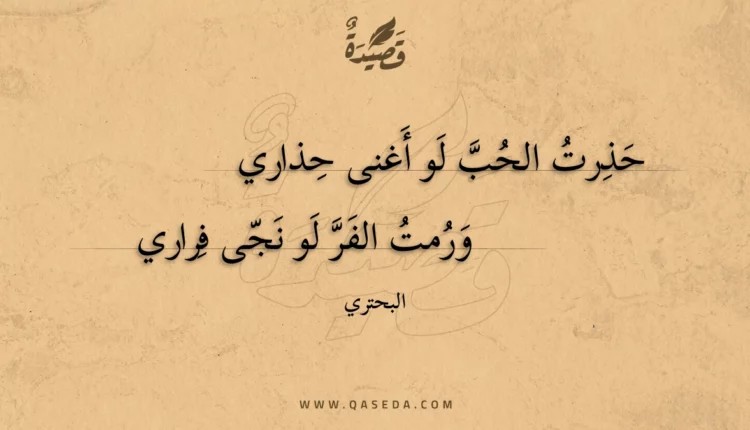 قَصِيدَةٌ
حَذِرتُ الحُبَّ لَو أَغنى حِذاري
وَرُمتُ الفَرَّ لَو نَجّى فِراري
البحتري
WWW.QASEDA.COM